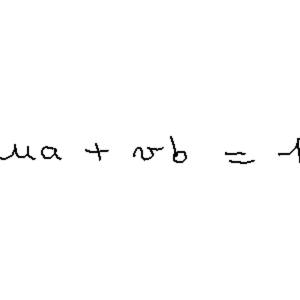 ua + vb = -1